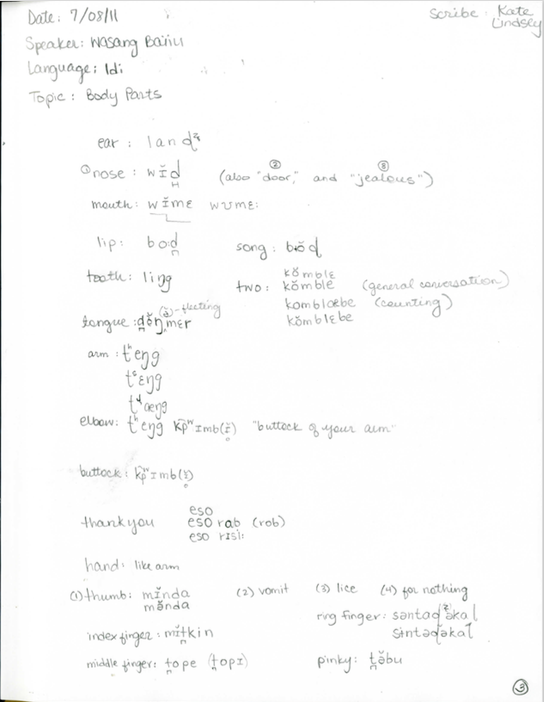 Date: 7/08/11 Scribe: Kate Lindsey
Speaker: Wasang Baiiu
Language: Idi
Topic: Body Parts
ear: land̢ᶻ
① nose: wɪ̆d̪ (also ② "door," and ③ "jealous")
mouth: wɪ̆mɛ wʊmɛ:
lip: bod̪ song: bŏɖ
tooth: liŋg two: kŏmblɛ
kŏmble (general conversation)
komblœbe (counting)
kŏmblɛbe
tongue: d̪ŏŋmɛr (ə)-fleeting
arm: tʰeŋg
tᶜɛŋg
œŋg
elbow: tʰeŋg k͡pʷɪmb(ɪ̥̆) "buttock of your arm"
buttock: k͡pʷɪmb(ɪ̥̆)
thank you eso
eso rab (rob)
eso rɪsi:
hand: like arm
(1) thumb: mɪ̆nda (2) vomit (3) lice (4) for nothing
mə̆nda
ring finger: səntaɖᶻəkal
index finger: mɪ̆t̪kin sɨntəɖəkal
middle finger: t̪ope (t̪opɪ) pinky: t̪ə̆bu
③